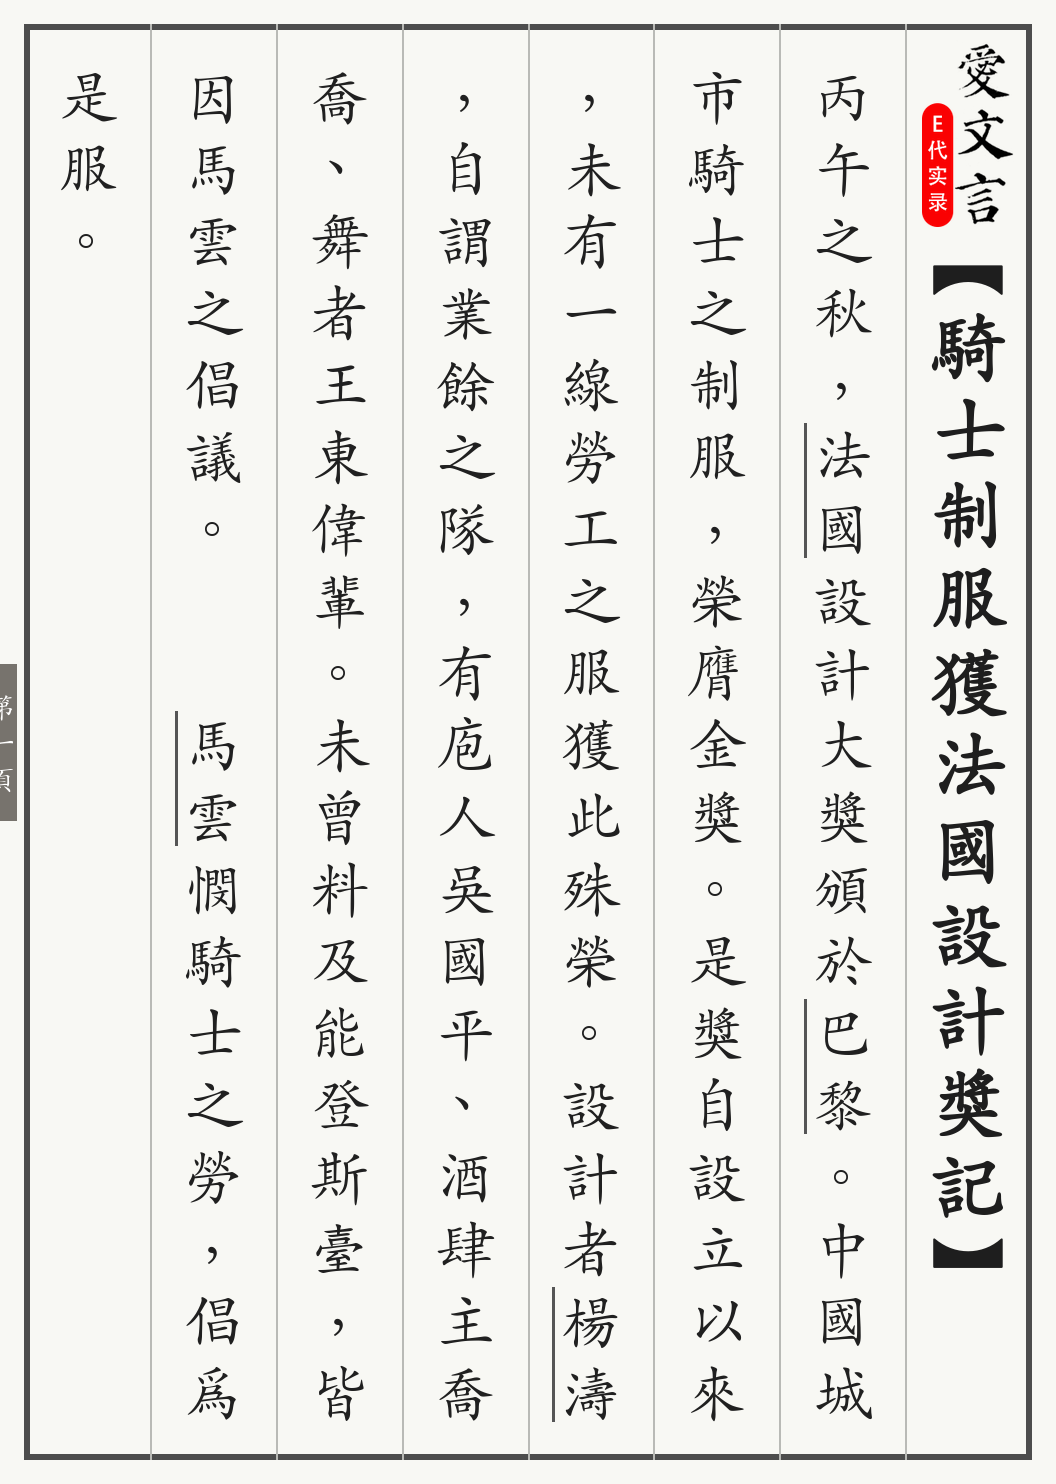 愛文言
E代实录
【騎士制服獲法國設計獎記】
丙午之秋，法國設計大獎頒於巴黎。中國城
市騎士之制服，榮膺金獎。是獎自設立以來
，未有一線勞工之服獲此殊榮。設計者楊濤
，自謂業餘之隊，有庖人吳國平、酒肆主喬
喬、舞者王東偉輩。未曾料及能登斯臺，皆
因馬雲之倡議。　　馬雲憫騎士之勞，倡爲
是服。
第一頁